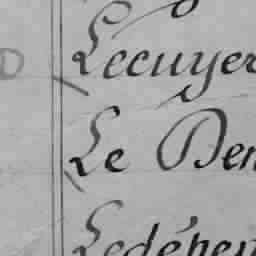 D
Lecuyer
Le Den
Ledépen